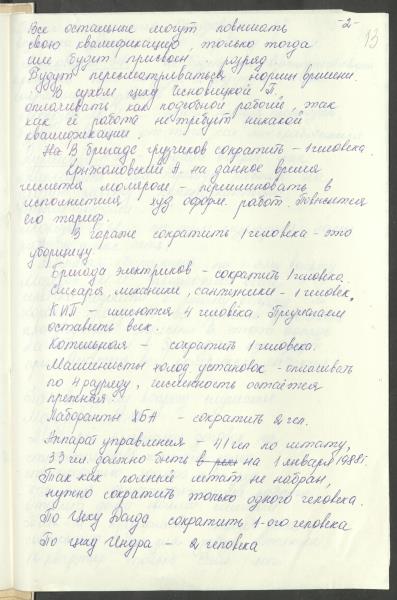 -2-
13
Все остальные могут повышать
свою квалификацию, только тогда
им будет присвоен разряд
Будут пересматриваться нормы времени.
В сухом цеху Чесновицкой П.
оплачивать как подсобной рабочей, так
как её работа не требует никакой
квалификации.
На В бригаде грузчиков сократить – 1 человека.
Крыжановский А. на данное время
числится маляром – переименовать в
исполнителя худ. оформ. работ. Повысится
его тариф.
В гараже сократить 1 человека – это
уборщицу
Бригада электриков – сократить 1 человека
Слесаря, механики, сантехники – 1 человек.
КИП – имеются 4 человека. Предлагаем
оставить всех.
Котельная – сократить 1 человека.
Машинисты холод. установок – оплачивать
по 4 разряду, численность остаётся
прежняя.
Лаборанты ХБА – сократить 2 чел.
Аппарат управления – 41 чел по штату,
33 чел должно быть в на 1 января 1988г.
Так как полный штат не набран,
нужно сократить только одного человека.
По цеху сократить 1-ого человека
По цеху Индра – 2 человека